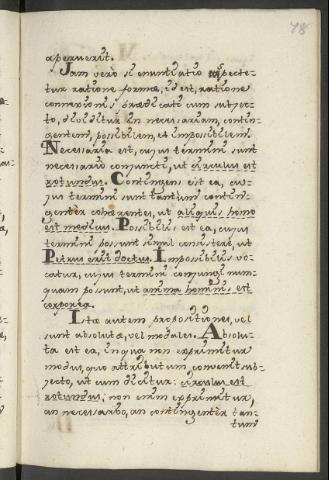 78
aperuerit.
Jam verò si enuntiatio specte-
tur ratione formæ, id est, ratione
connexionis prædicati cum subjec-
to, dividitur in necessariam, contin-
gentem, possibilem, et impossibilem.
Necessaria est, cujus termini sunt
necessario conjuncti, ut circulus est
rotundus. Contingens est ea, cu-
jus termini sunt tantum contin-
genter cohærentes, ut aliquis homo
est medicus. Possibilis est ea, cujus
termini possunt simul consistere, ut
Petrus erit doctus. Impossibilis vo-
catur, cujus termini conjungi num-
quam possunt, ut anima hominis est
corporea.
Istæ autem propositiones, vel
sunt absolutæ, vel modales. Absolu-
ta est ea, in qua non exprimitur
modus, quo attributum convenit sub-
jecto, ut cum dicitur: circulus est
rotundus; non enim exprimitur,
an necessario, an contingenter tan-
tum